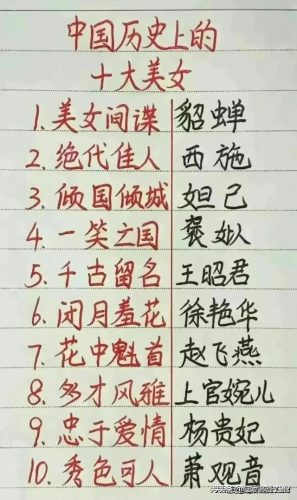 中国历史上的
十大美女
1.美女间谍 貂蝉
2.绝代佳人 西施
3.倾国倾城 妲己
4.一笑之国 褒姒
5.千古留名 王昭君
6.闭月羞花 徐艳华
7.花中魁首 赵飞燕
8.多才风雅 上官婉儿
9.忠于爱情 杨贵妃
10.秀色可人 萧观音